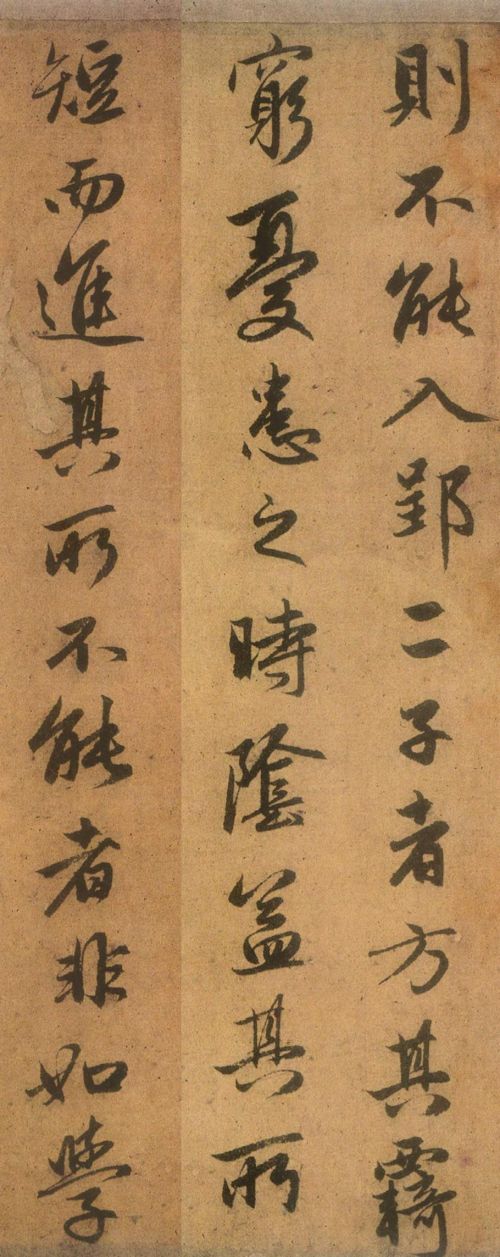 則不能入郢二子者方其覉
窮憂患之時陰益其所
短而進其所不能者非如學